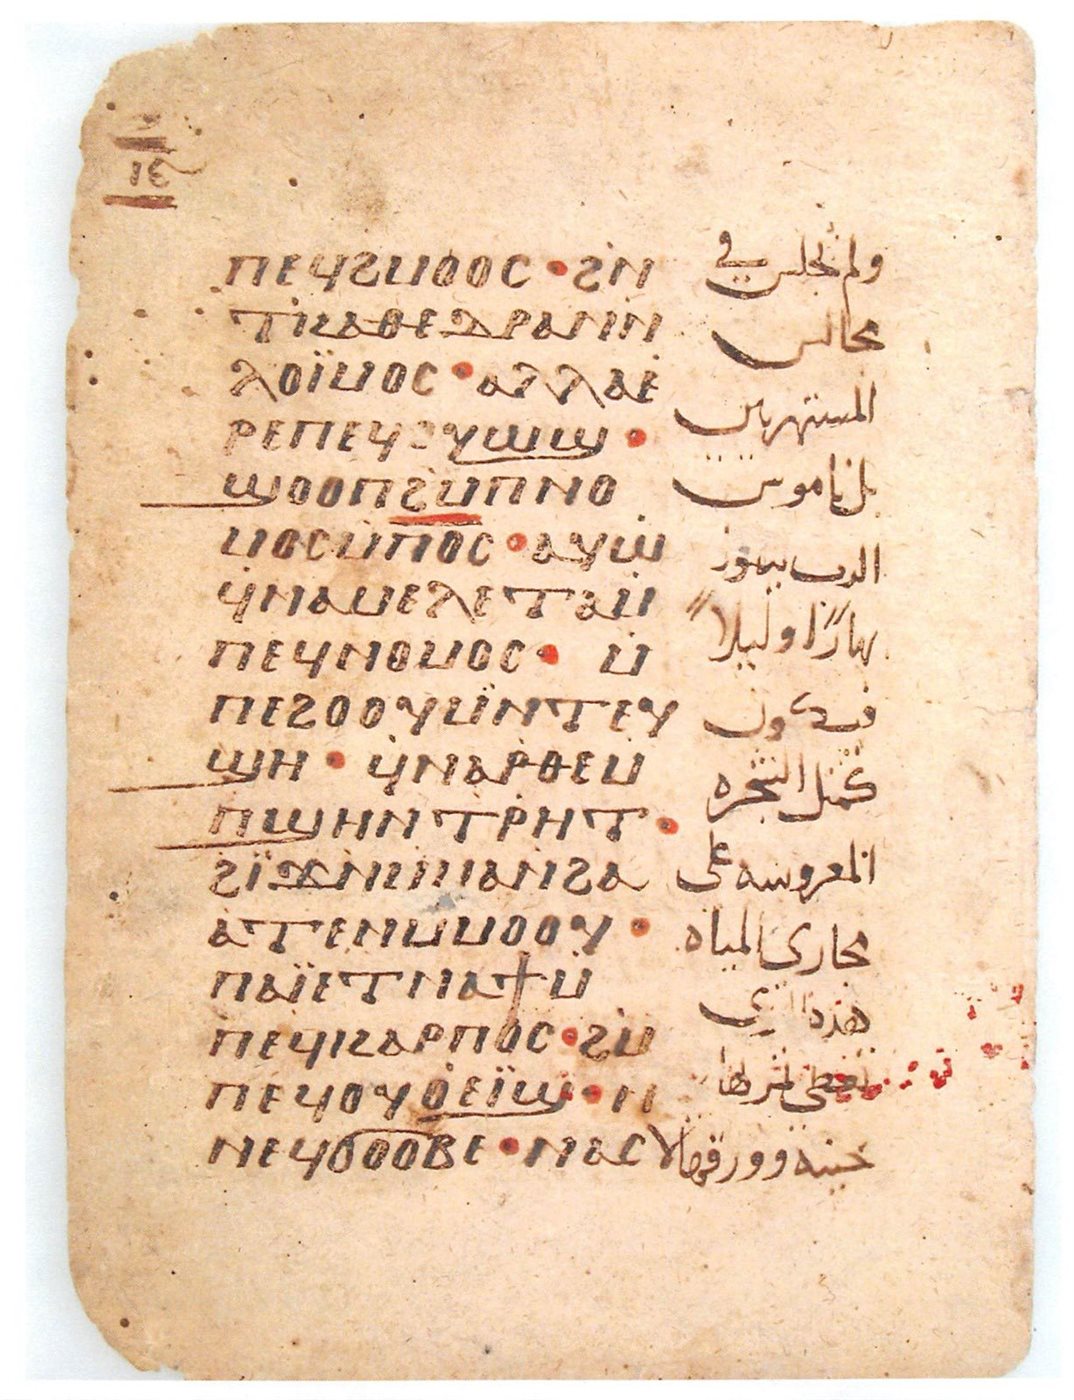 ⲓⲉ
ⲡⲉϥϩⲙⲟⲟⲥ · ϩⲛ
ⲧⲕⲁⲑⲉⲇⲣⲁⲛⲛ
ⲗⲟⲓ̈ⲙⲟⲥ · ⲁⲗⲗⲁⲉ
ⲣⲉⲡⲉϥⲟⲩⲱϣ ·
ϣⲟⲟⲡϩⲙⲡⲛⲟ
ⲙⲟⲥⲙⲡⲟⲥ · ⲁⲩⲱ
ϥⲛⲁⲙⲉⲗⲉⲧⲁⲙ
ⲡⲉϥⲛⲟⲙⲟⲥ · ⲙ
ⲡⲉϩⲟⲟⲩⲙⲛⲧⲉⲩ
ϣⲏ · ϥⲛⲁⲣⲑⲉⲙ
ⲡϣⲏⲛ ⲧⲣⲏⲧ ·
ϩⲓ̈ϫⲛⲙⲙⲁⲛϩⲁ
ⲁⲧⲉⲛⲙⲙⲟⲟⲩ ·
ⲡⲁⲓ̈ⲉⲧⲛⲁϯⲙ
ⲡⲉϥⲕⲁⲣⲡⲟⲥ · ϩⲙ
ⲡⲉϥⲟⲩⲟⲉⲓ̈ϣ · ⲛ
ⲛⲉϥϭⲟⲟⲃⲉ · ⲛⲁⲥ
ولم يجلس في
مجالس
المستهزيين
بل ناموس
الرب يهوز
نهارًا وليلًا
فيكون
كمثل الشجره
المغروسه على
مجاري المياه
هذه التي
تعطي ثمرتها
حينه وورقها لا